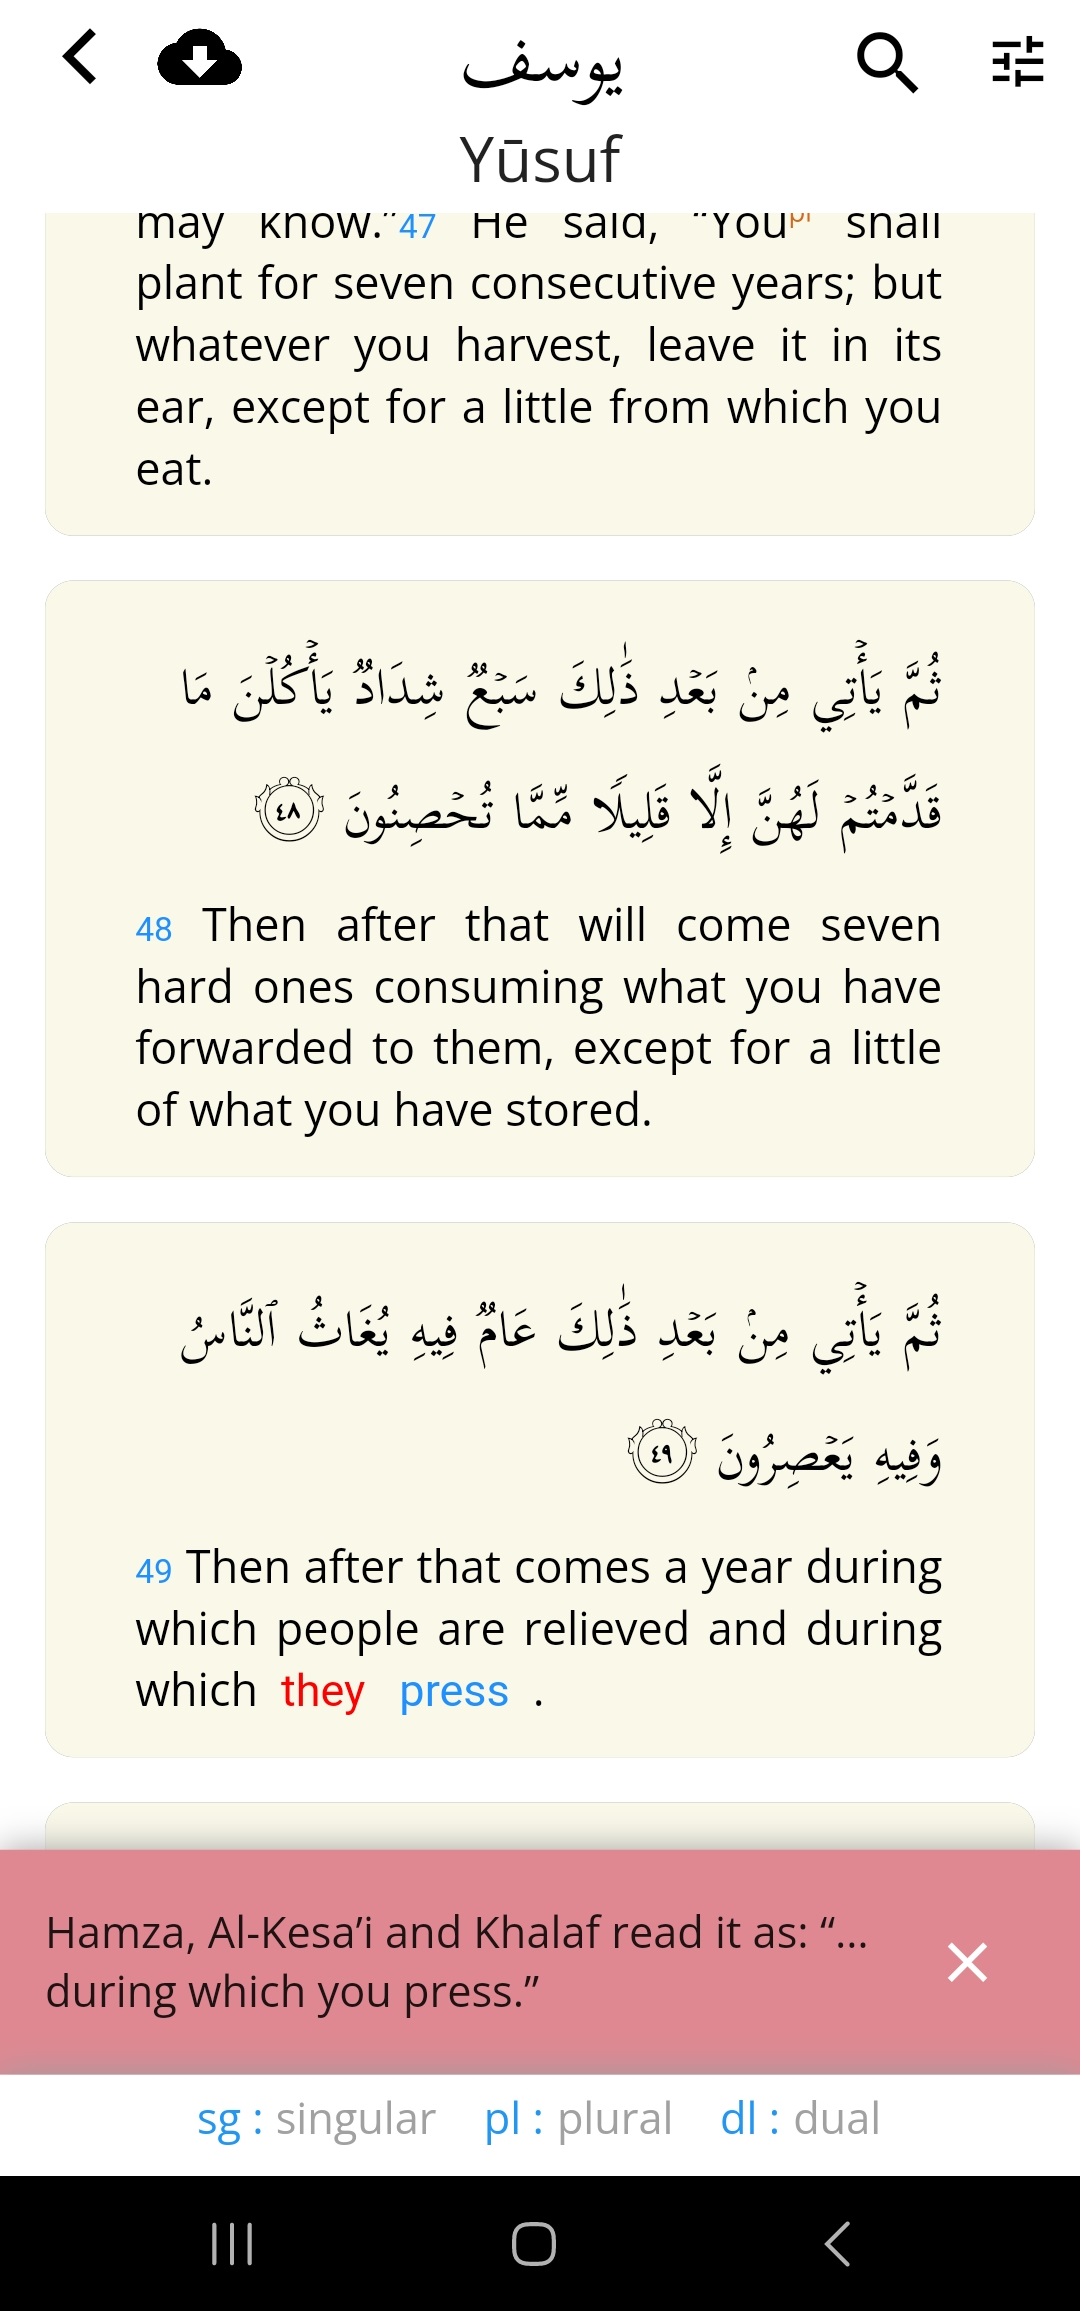 يوسف
Yūsuf
may know.”47 He said, “Youpl shall
plant for seven consecutive years; but
whatever you harvest, leave it in its
ear, except for a little from which you
eat.
ثُمَّ يَأۡتِي مِنۢ بَعۡدِ ذَٰلِكَ سَبۡعٞ شِدَادٞ يَأۡكُلۡنَ مَا
قَدَّمۡتُمۡ لَهُنَّ إِلَّا قَلِيلٗا مِّمَّا تُحۡصِنُونَ ٤٨
48 Then after that will come seven
hard ones consuming what you have
forwarded to them, except for a little
of what you have stored.
ثُمَّ يَأۡتِي مِنۢ بَعۡدِ ذَٰلِكَ عَامٞ فِيهِ يُغَاثُ ٱلنَّاسُ
وَفِيهِ يَعۡصِرُونَ ٤٩
49 Then after that comes a year during
which people are relieved and during
which they press .
Hamza, Al-Kesa’i and Khalaf read it as: “...
during which you press.”
sg : singular pl : plural dl : dual